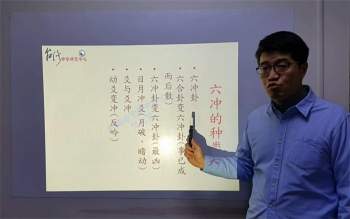 六冲的种类
六冲卦
六合卦变六冲卦(事已成而后散)
六冲卦变六冲卦(最凶)
日月冲爻(月破、暗动)
爻与爻冲
动爻变冲(反吟)